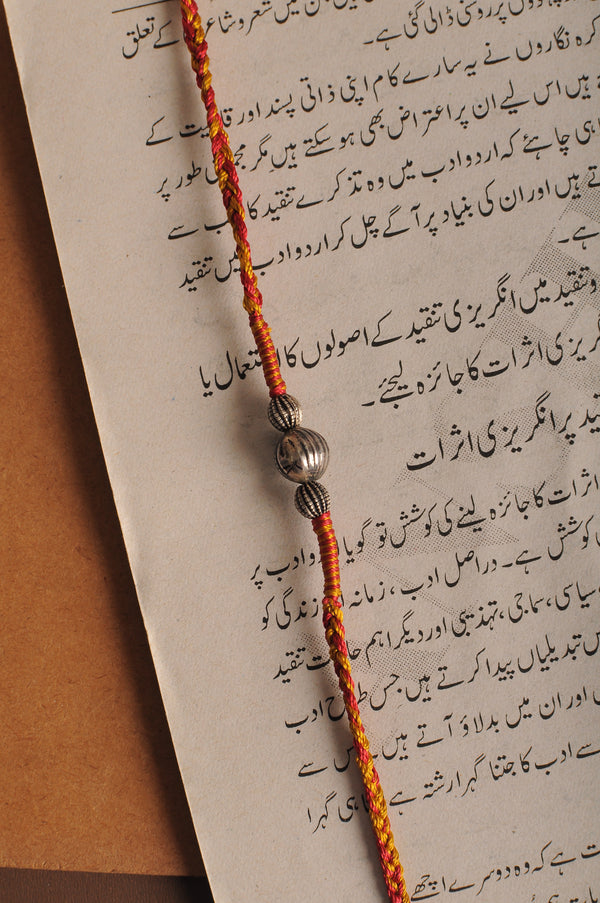 جن میں شعر و شاعری کے تعلق
پہلوؤں پر روشنی ڈالی گئی ہے۔
کرہ نگاروں نے یہ سارے کام اپنی ذاتی پسند اور قابلیت کے
ہیں اس لیے ان پر اعتراض بھی ہو سکتے ہیں مگر مجموعی طور پر
ہی چاہئے کہ اردو ادب میں وہ تذکرے تنقید کا سے
تے ہیں اور ان کی بنیاد پر آگے چل کر اردو ادب میں تنقید
ہے۔
و تنقید میں انگریزی تنقید کے اصولوں کا استعمال یا
گریزی اثرات کا جائزہ لیجئے۔
ید پر انگریزی اثرات
اثرات کا جائزہ لینے کی کوشش تو گویا اردو ادب پر
کوشش ہے۔ دراصل ادب، زمانہ زندگی کو
سیاسی، سماجی، تہذیبی اور دیگر اہم حالات تنقید
س تبدیلیاں پیدا کرتے ہیں جس طرح ادب
اور ان میں بدلاؤ آتے ہیں۔ اس سے
سے ادب کا جتنا گہرا رشتہ ہے اتنا ہی گہرا
ت ہے کہ وہ دوسرے اچھے